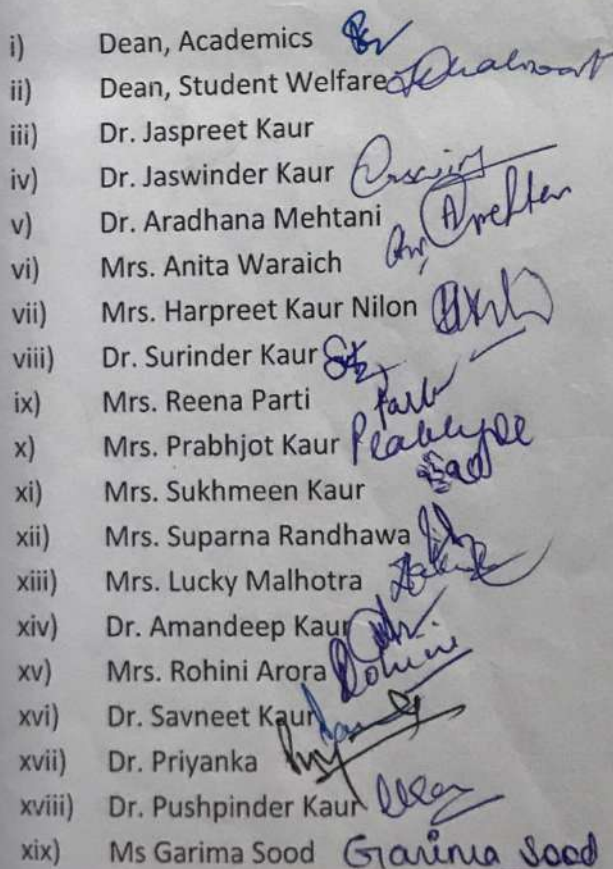 i) Dean, Academics
ii) Dean, Student Welfare
iii) Dr. Jaspreet Kaur
iv) Dr. Jaswinder Kaur
v) Dr. Aradhana Mehtani
vi) Mrs. Anita Waraich
vii) Mrs. Harpreet Kaur Nilon
viii) Dr. Surinder Kaur
ix) Mrs. Reena Parti
x) Mrs. Prabhjot Kaur
xi) Mrs. Sukhmeen Kaur
xii) Mrs. Suparna Randhawa
xiii) Mrs. Lucky Malhotra
xiv) Dr. Amandeep Kaur
xv) Mrs. Rohini Arora Rohini
xvi) Dr. Savneet Kaur
xvii) Dr. Priyanka
xviii) Dr. Pushpinder Kaur
xix) Ms Garima Sood Garima Sood